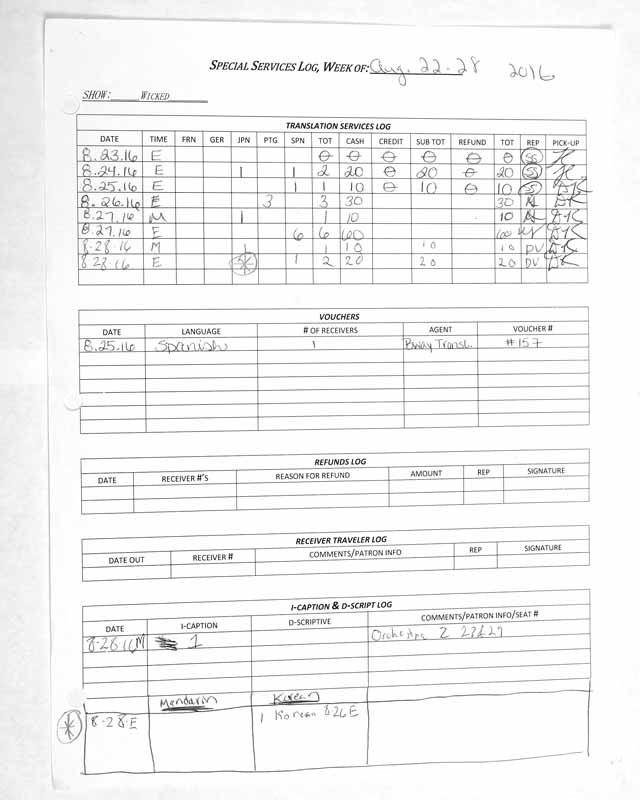 SPECIAL SERVICES LOG, WEEK OF: Aug. 22-28 2016
SHOW: WICKED
TRANSLATION SERVICES LOG
DATE TIME FRN GER JPN PTG SPN TOT CASH CREDIT SUB TOT REFUND TOT REP PICK-UP
8.23.16 E 0 0 0 0 0 0 SS K
8.24.16 E 1 1 2 20 0 20 0 20 SS K
8.25.16 E 1 1 10 0 10 0 10 SS DK
8.26.16 E 3 3 30 30 DK
8.27.16 M 1 1 10 10 DK
8.27.16 E 6 6 60 60 DK
8-28-16 M 1 1 10 10 10 DV DK
8-28-16 E * 1 2 20 20 20 DV DK
VOUCHERS
DATE LANGUAGE # OF RECEIVERS AGENT VOUCHER #
8.25.16 Spanish 1 Bway Transl. #157
REFUNDS LOG
DATE RECEIVER #'S REASON FOR REFUND AMOUNT REP SIGNATURE
RECEIVER TRAVELER LOG
DATE OUT RECEIVER # COMMENTS/PATRON INFO REP SIGNATURE
I-CAPTION & D-SCRIPT LOG
DATE I-CAPTION D-SCRIPTIVE COMMENTS/PATRON INFO/SEAT #
8-28-16 M 1 Orchestra Z 27&29
Mandarin Korean
* 8-28-E 1 Korean 826E